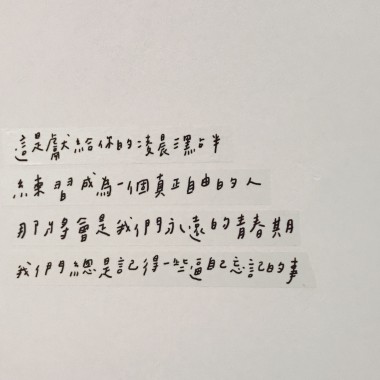 這是獻給你的凌晨三點半
練習成為一個真正自由的人
那將會是我們永遠的青春期
我們總是記得一些逼自己忘記的事